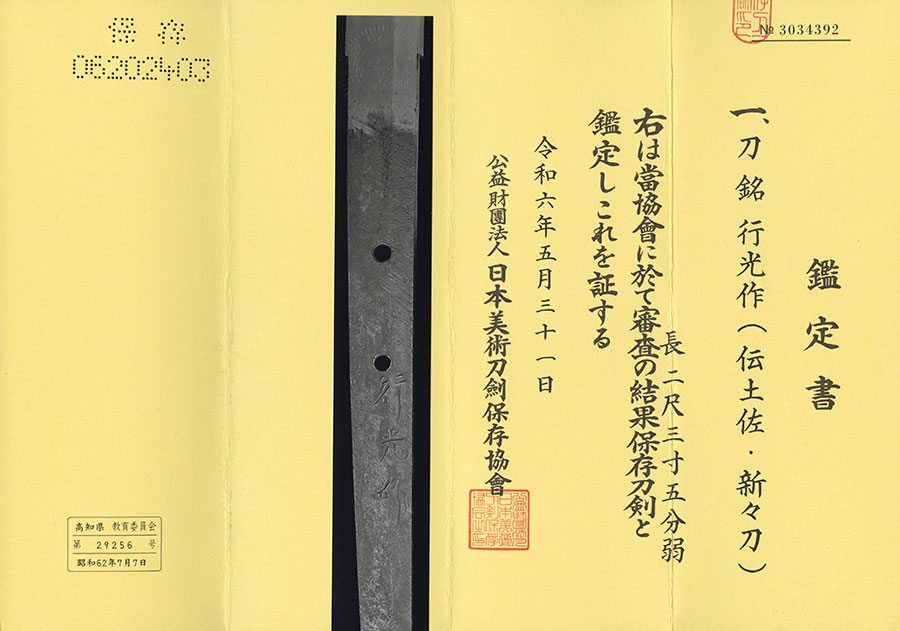 № 3034392
鑑定書
一、刀 銘 行光作(伝土佐・新々刀)
長二尺三寸五分弱
右は當協會に於て審査の結果保存刀剣と
鑑定しこれを証する
令和六年五月三十一日
公益財團法人 日本美術刀劍保存協會
行光作
保存
06202403
高知県 教育委員会
第 29256 号
昭和62年7月7日